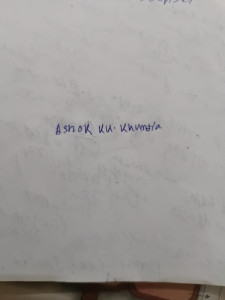 Ashok Ku. Khuntia